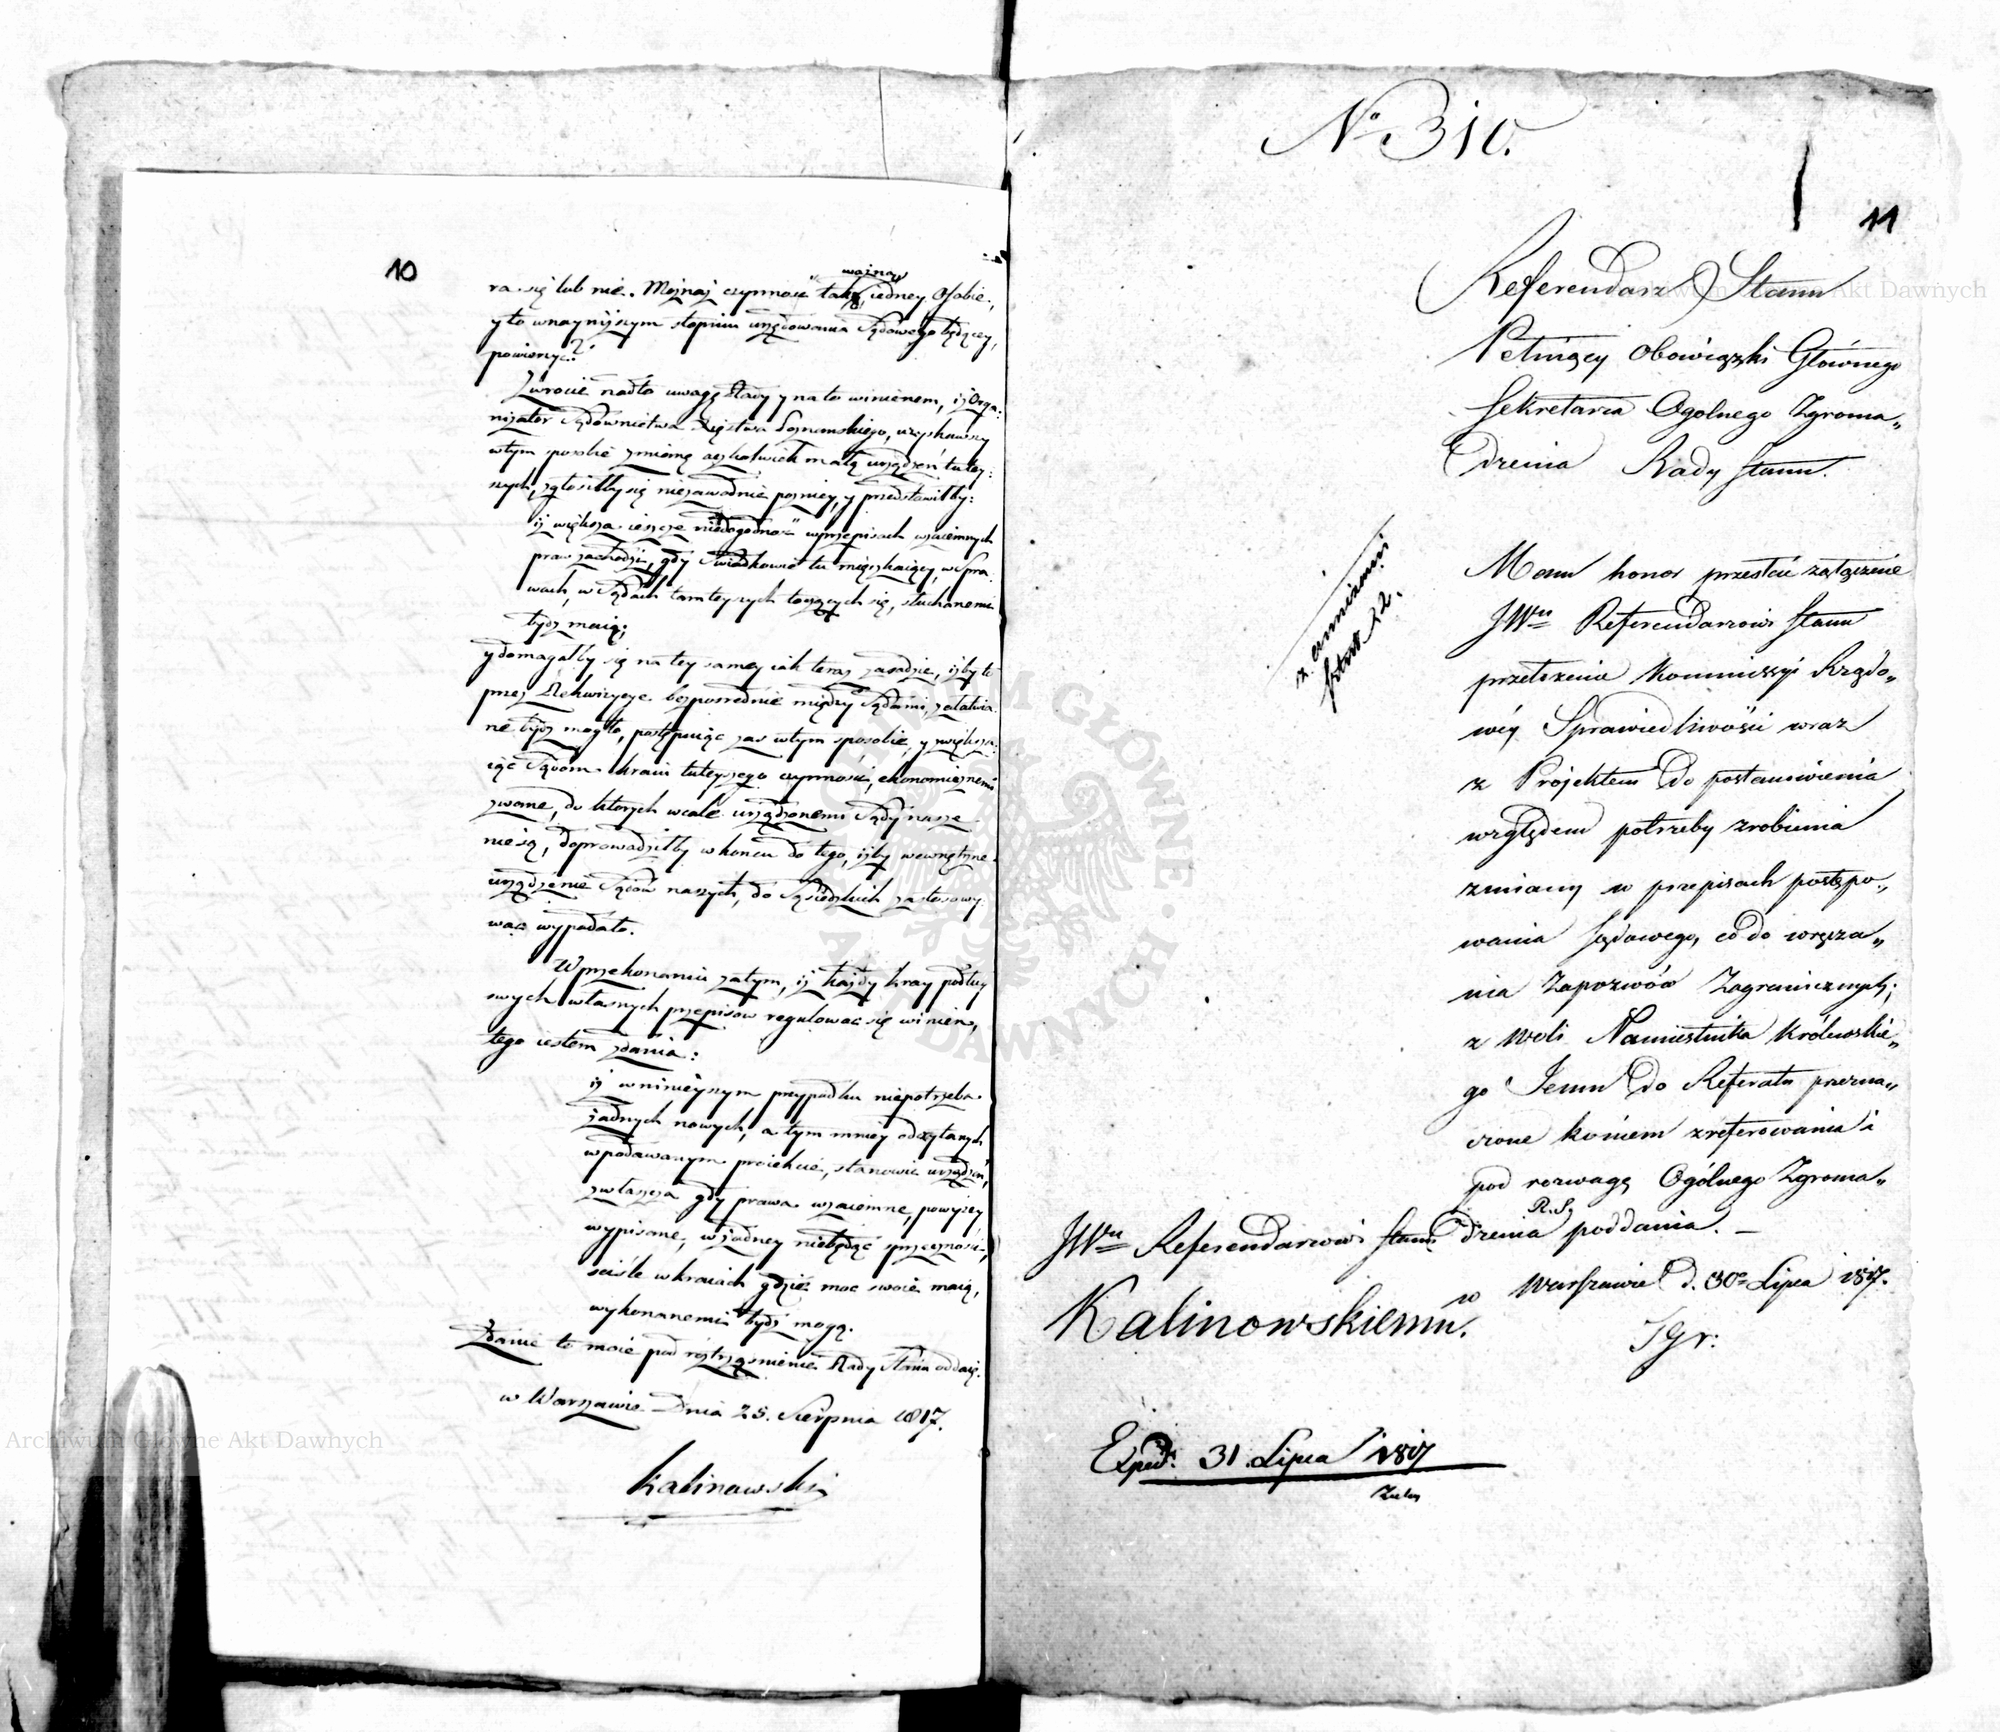 10
ra się lub nie. Możnaż czynność tak ważną iedney Osobie,
y to w nayniższym stopniu urzędowania Sądowego będącey,
powierzyć?
Zwrócić nadto uwagę Rady y na to winienem, iż Orga:
nizator Sądownictwa Xięstwa Poznańskiego, uzyskawszy
w tym sposobie zmianę aczkolwiek małą urządzeń tutey:
szych, zgłosiłby się niezawodnie pozniey, y przedstawiłby:
iż większa ieszcze niedogodność w przepisach wzaiemnych
praw zachodzi, gdy Swiadkowie tu mięszkaiący, w Spra
wach, w Sądach tamteyszych toczących się, słuchanemi
bydź maią;
y domagałby się na tey samey iak teraz zasadzie, iżby to
przez Rekwizycye bezpośrednie między Sądami, załatwia
ne bydź mogło, postępuiąc zaś w tym sposobie, y zwiększa:
iąc Sądom kraiu tuteyszego czynności, ekonomicznemi
zwane, do których wcale urządzonemi Sądy nasze
nie są, doprowadziłby w końcu do tego, iżby wewnętrzne
urządzenie Sądów naszych, do Sąsiedzkich zastosowy
wać wypadało.
W przekonaniu zatym, iż każdy kray podług
swych własnych przepisów regulować się winien,
tego iestem zdania:
iż w ninieyszym przypadku niepotrzeba
żadnych nowych, a tym mniey odczytanych
w podawanym proiekcie, stanowić urządzeń,
zwłaszcza gdy prawa wzaiemne, powyżey
wypisane, w żadney niebędąc sprzeczności,
ściśle w kraiach gdzie moc swoię maią,
wykonanemi bydź mogą.
Zdanie to moie pod roztrząśnienie Rady Stanu oddaię.
w Warszawie Dnia 25. Sierpnia 1817.
Kalinowski
No 310.
11
Referendarz Stanu
Pełniący Obowiązki Głównego
Sekretarza Ogolnego Zgroma„
dzenia Rady Stanu.
Mam honor przesłać załączone
JWu Referendarzowi Stanu
przełożenie Kommissyi Rządo„
wéy Sprawiedliwości wraz
z Projektem do postanowienia
względem potrzeby zrobienia
zmiany w przepisach postępo„
wania Sądowego, co do wręcza„
nia Zapozwów Zagranicznych;
z woli Namiestnika Królewskie„
go Jemu do Referatu przezna„
czone koniem zreferowania i
pod rozwagę Ogólnego Zgroma„
dzenia R. S. poddania. —
w Warszawie d. 30o Lipca 1817.
JWu Referendarzowi Stanu
Kalinowskiemu.
Exped. 31 Lipca 1817
Archiwum Główne Akt Dawnych
ARCHIWUM GŁÓWNE AKT DAWNYCH